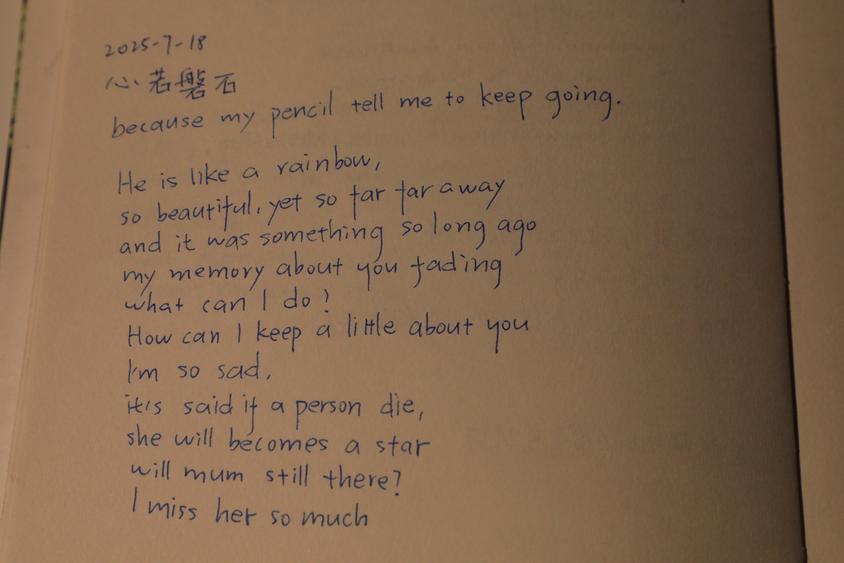 2025-7-18
心若磐石
because my pencil tell me to keep going.
He is like a rainbow,
so beautiful, yet so far far away
and it was something so long ago
my memory about you fading
what can I do?
How can I keep a little about you
I'm so sad.
it's said if a person die,
she will becomes a star
will mum still there?
I miss her so much